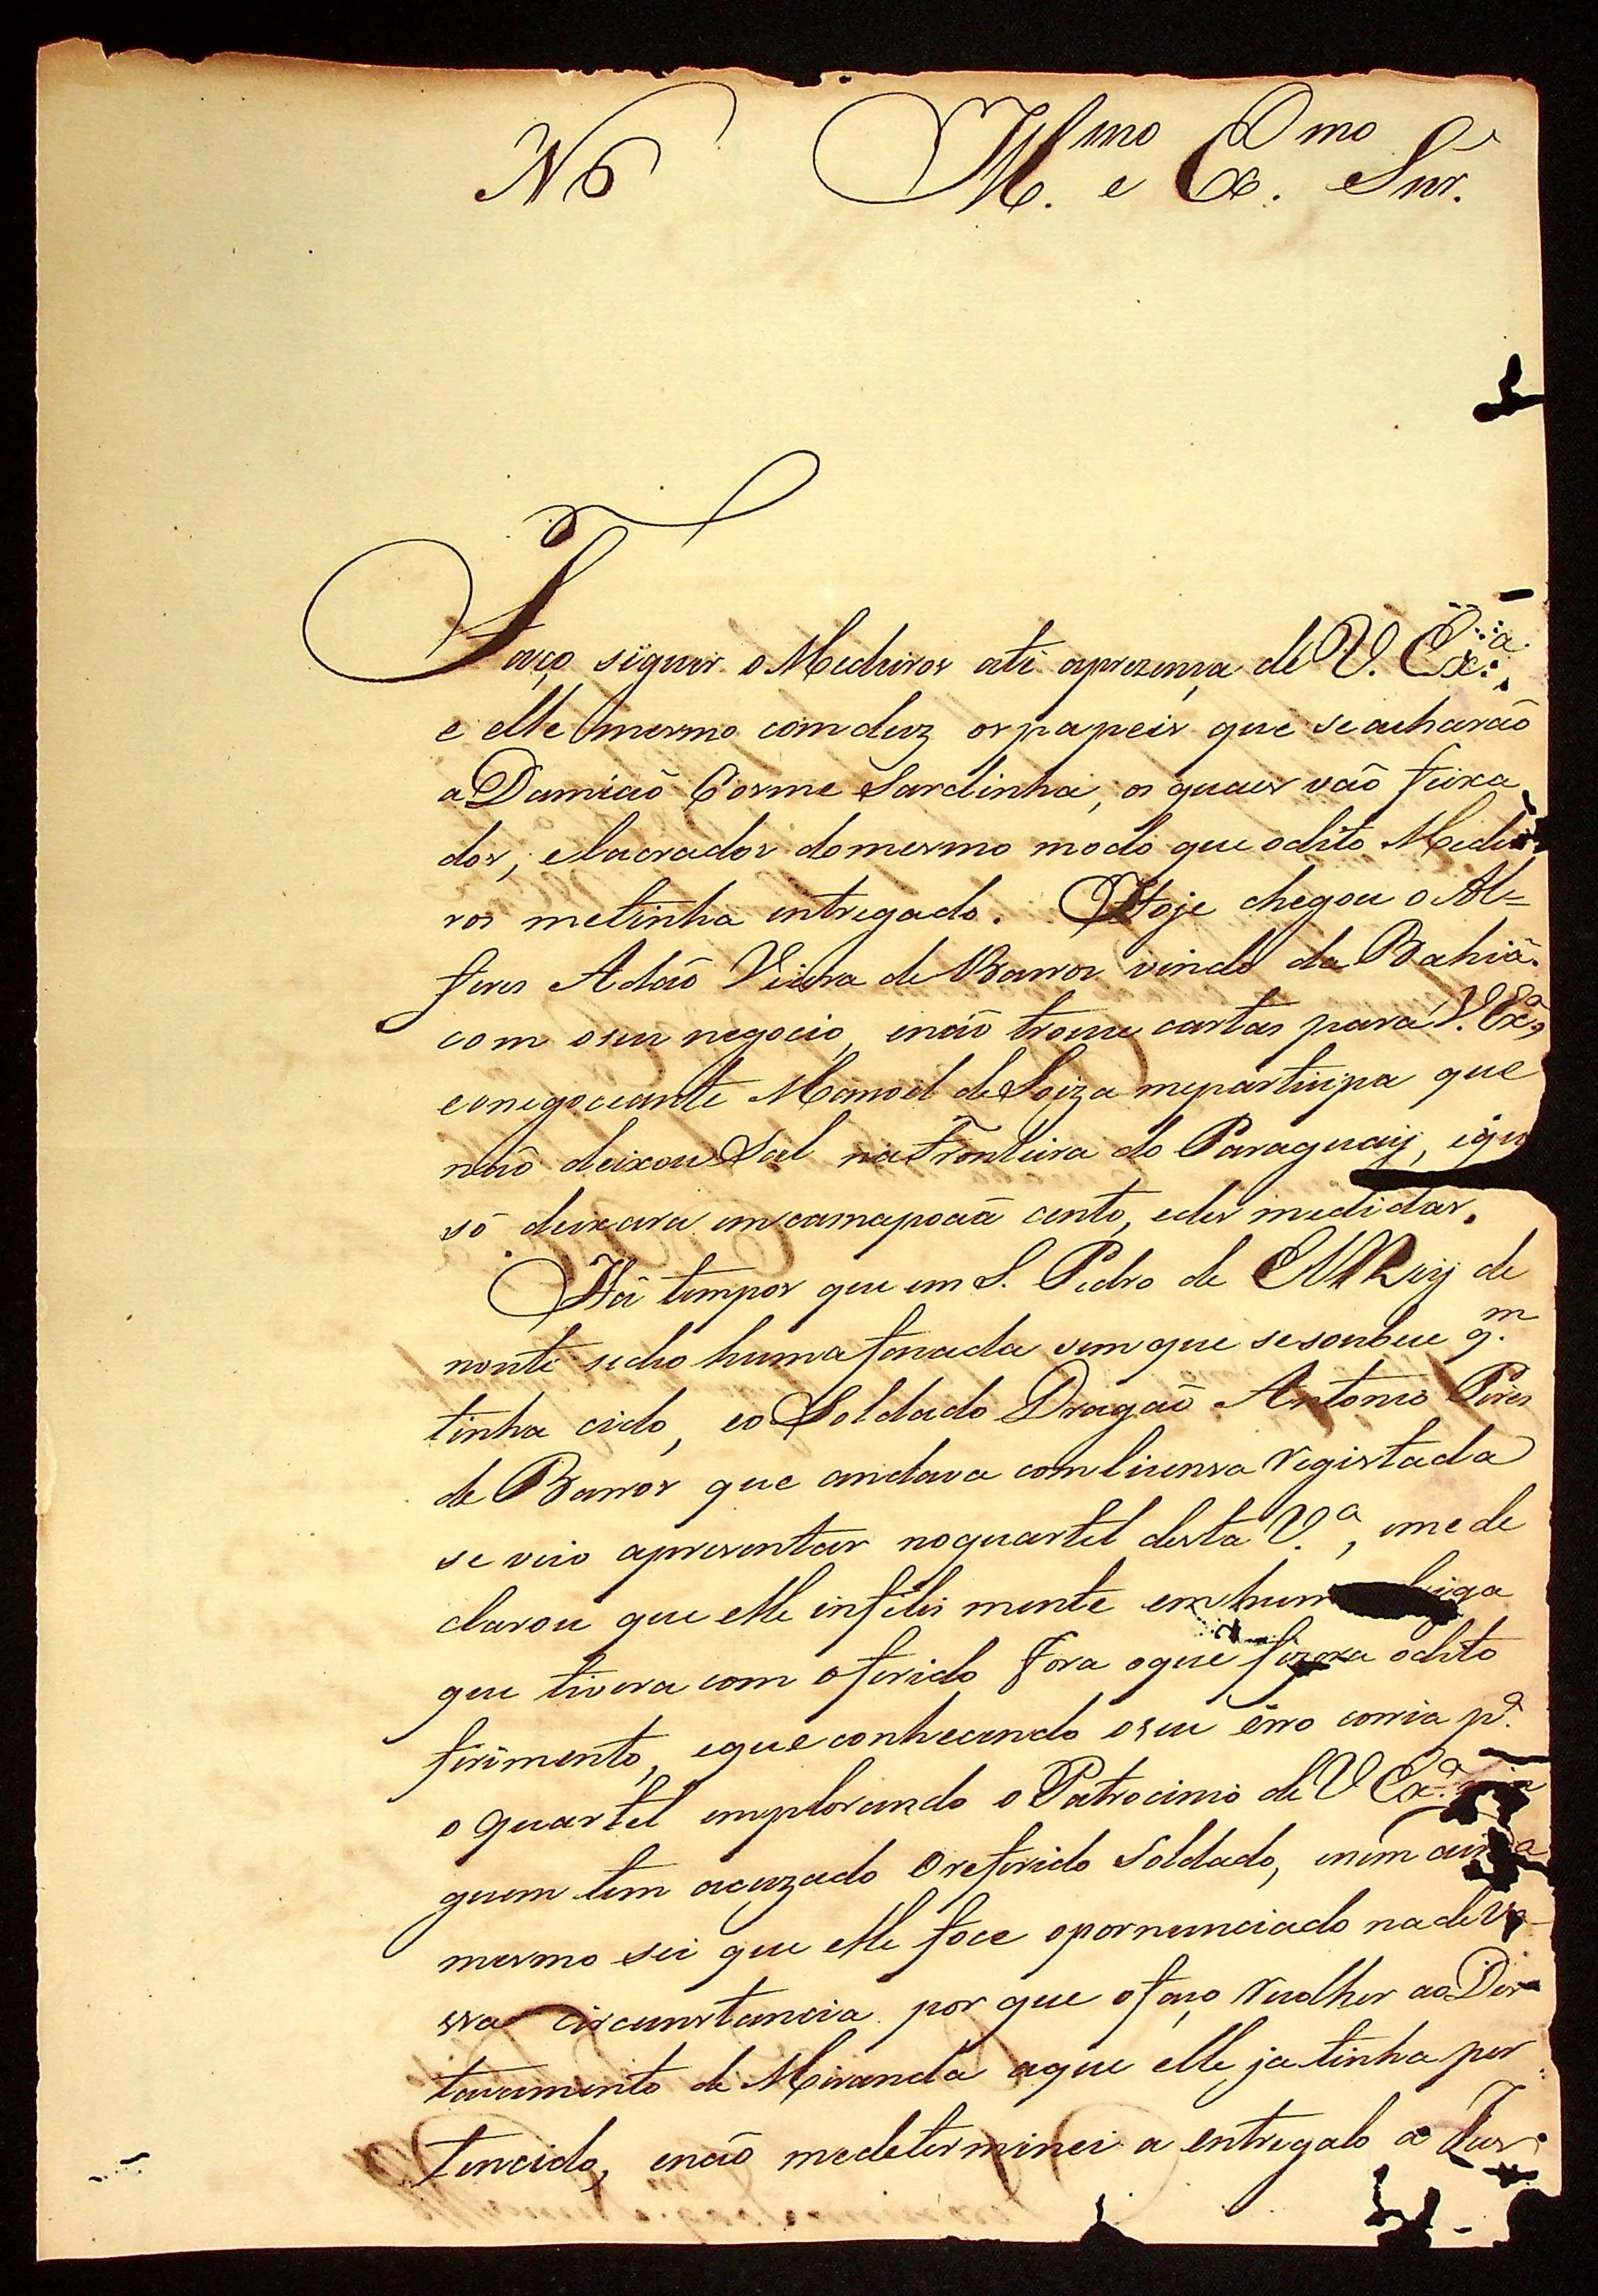 N 6 Ill.mo e Ex.mo Snr.
Faço siguir o Medeiros até aprezença de V. Ex.a,
e elle mesmo comduz os papeis que se acharão
a Damiaõ Cosme Sardinha, os quaes vaõ fixa
dos, e lacrados do mesmo modo que o dito Medei
ros me tinha entregado. Hoje chegou o Al=
feres Adaõ Vieira de Barros vindo da Bahia
com o seu negocio, enaõ trouxe cartas para V. Ex.a,
e o negoceante Manoel de Soiza me partisipa que
naõ deixou Sal na Fronteira do Paraguaiÿ, eque
só deixara em camapoaã cento, e des medidas.
Há tempos que em S. Pedro de ElRey de
noute se deo huma facada sem que se soubese q.m
tinha cido, e o Soldado Dragaõ Antonio Pires
de Barros que andava com licensa registada
se veio apresentar no quartel desta V.a, e me de
clarou que elle infelis mente em huma
que tivera com o ferido fora o que fizera o dito
firimento, e que conhecendo o seu érro corria p.a
o quartel emplorando o Patrocinio de V Ex.a
guem tem acuzado o referido Soldado, e nem ainda
mesmo sei que elle foce o pornunciado na deva
ssa circunstancia por que o faço recolher ao Des
tacamento de Miranda aque elle ja tinha per
tencido, enaõ me determinei a entregalo a Jus